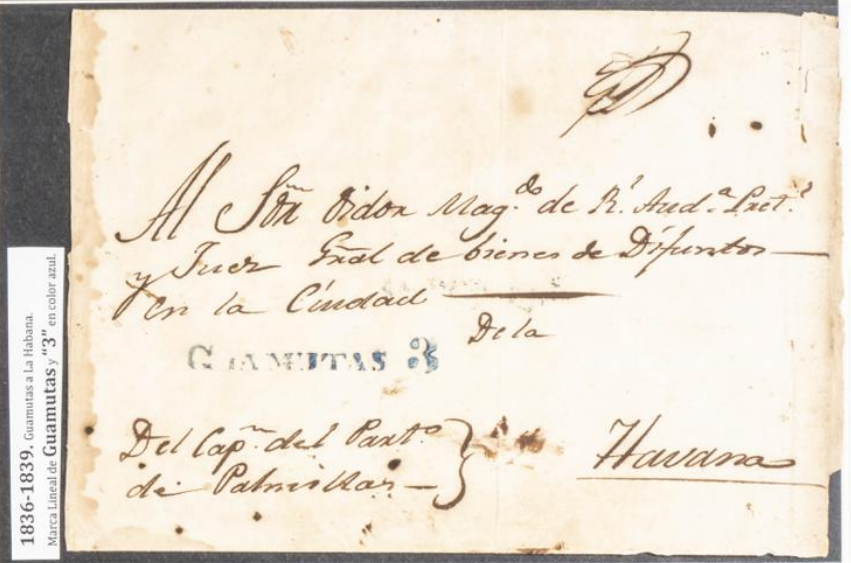 1836-1839. Guamutas a La Habana.
Marca Lineal de Guamutas y "3" en color azul.
Al Sõr Oidor Mag.do de R.l Aud.a Pret.l
y Juez Gral de bienes de Difuntos
en la Ciudad
De la
GUAMUTAS 3
Havana
Del Cap.n del Part.o
de Palmillas